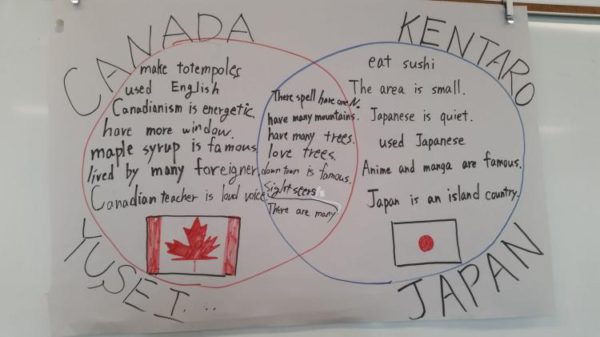 CANADA
KENTARO
make totempoles
used English
Canadianism is energetic.
have more window.
maple syrup is famous
lived by many foreigner.
Canadian teacher is loud voice
There spell have one N.
have many mountains.
have many trees.
love trees.
down town is famous.
Sightseers
There are many
eat sushi
The area is small.
Japanese is quiet.
used Japanese
Anime and manga are famous.
Japan is an island country.
YUSEI...
JAPAN